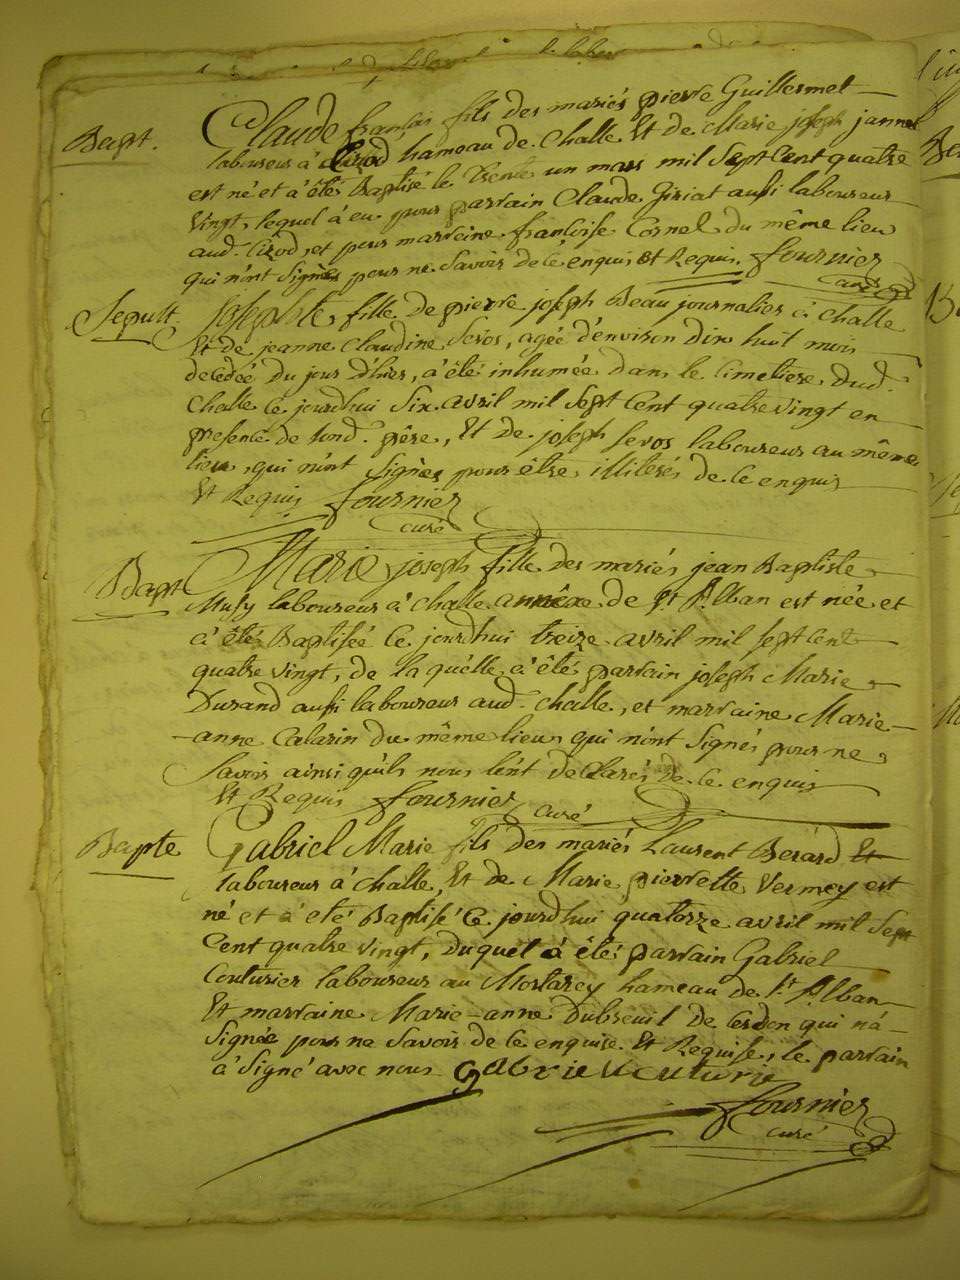 Bapt.
Claude françois fils des mariés pierre Guillermet
laboureur à Cizod hameau de Challe Et de Marie joseph jannet
est né et à été Baptisé le trente un mars mil Sept Cent quatre
Vingt, lequel à eu pour parrain Claude Giriat aussi laboureur
aud. Cizod, et pour marraine françoise Cornel du même lieu
qui n'ont Signés pour ne Savoir de ce enquis et Requis. fournier
curé
Sepult.
Josephte fille de pierre joseph Beau journalier à Challe
Et de jeanne Claudine Servos, agée d'environ dix huit mois
decedée Du jour d'hier, à été inhumée dans le Cimetiere dud.
Challe Ce jourdhui Six avril mil Sept Cent quatre vingt en
presence de sond. père, Et de joseph Servos laboureur au même
lieu, qui n'ont Signés pour être illiterés de ce enquis
Et Requis fournier
curé
Bapt
Marie joseph fille des mariés jean Baptiste
Musy laboureur à Challe annexe de St Alban est née et
à été Baptisée Ce jourdhui treize avril mil sept Cent
quatre vingt, de laquelle à été parrain joseph Marie
Durand aussi laboureur aud. Challe, et marraine Marie
anne Calarin du même lieu qui n'ont Signés pour ne
Savoir ainsi qu'ils nous l'ont declarés de ce enquis
Et Requis fournier
curé
Bapte
Gabriel Marie fils des mariés Laurent Berard Et
laboureur à Challe, Et de Marie pierrette Vermey est
né et à eté Baptisé Ce jourdhui quatorze avril mil Sept
Cent quatre vingt, Duquel à été parrain Gabriel
Couturier laboureur au Mortarey hameau de St Alban
Et marraine Marie-anne Dubreuil de Cerdon qui n'à
Signée pour ne Savoir de ce enquise Et Requise, le parrain
à Signé avec nous Gabriel
fournier
curé